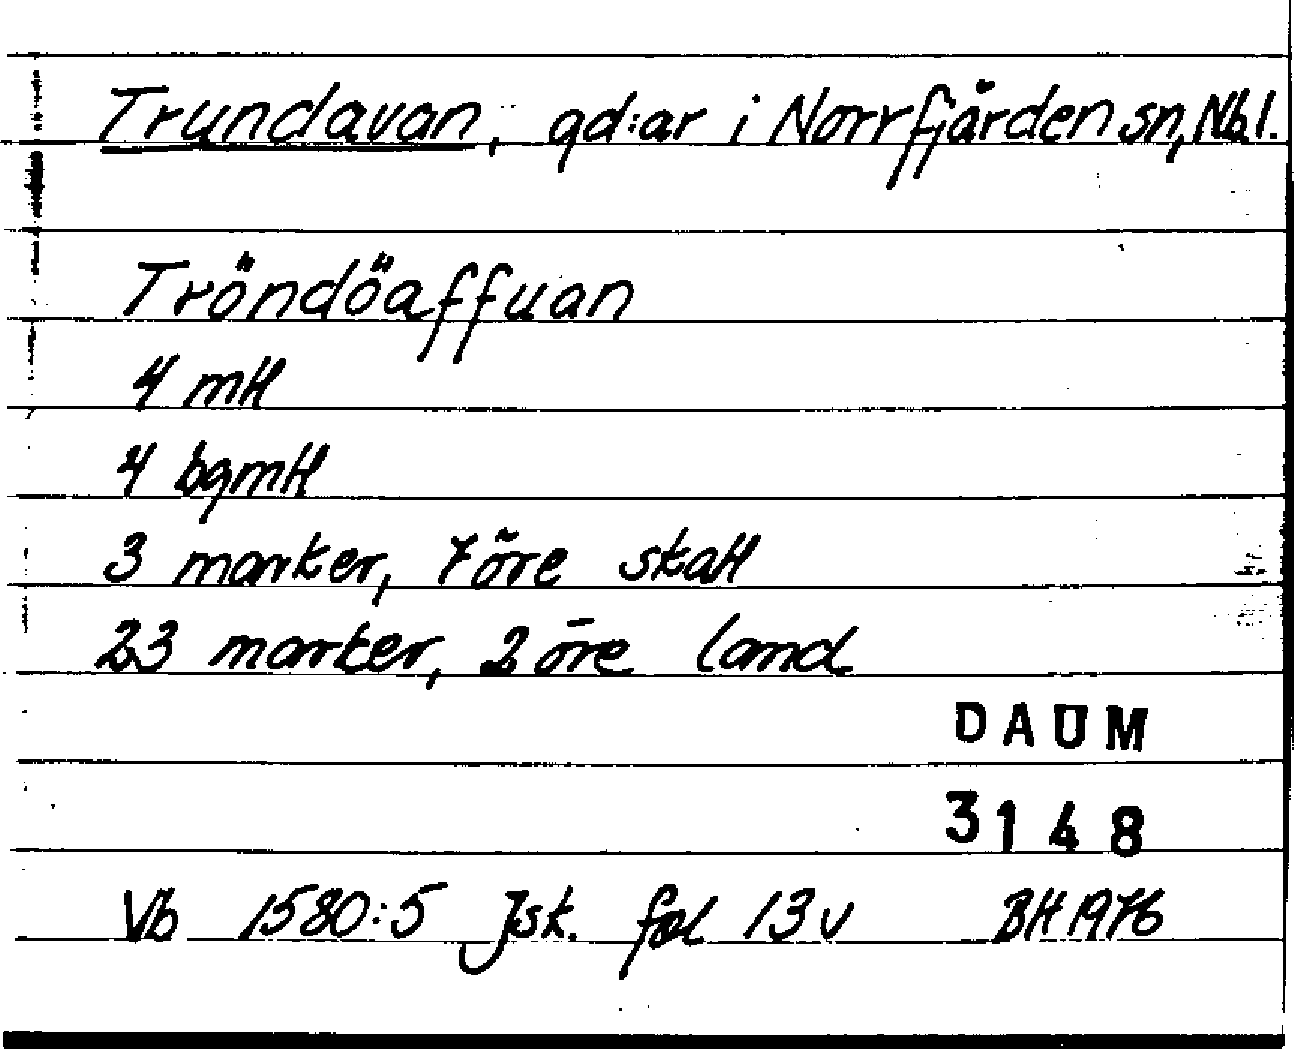 Trundavan, gd:ar i Norrfjärden sn, Nb l.
Tröndöaffuan
4 mtl
4 bgmtl
3 marker, 7 öre skatt
23 marker, 2 öre land
DAUM
3148
Vb 1580:5 Jsk. fol 13 v BH 1976